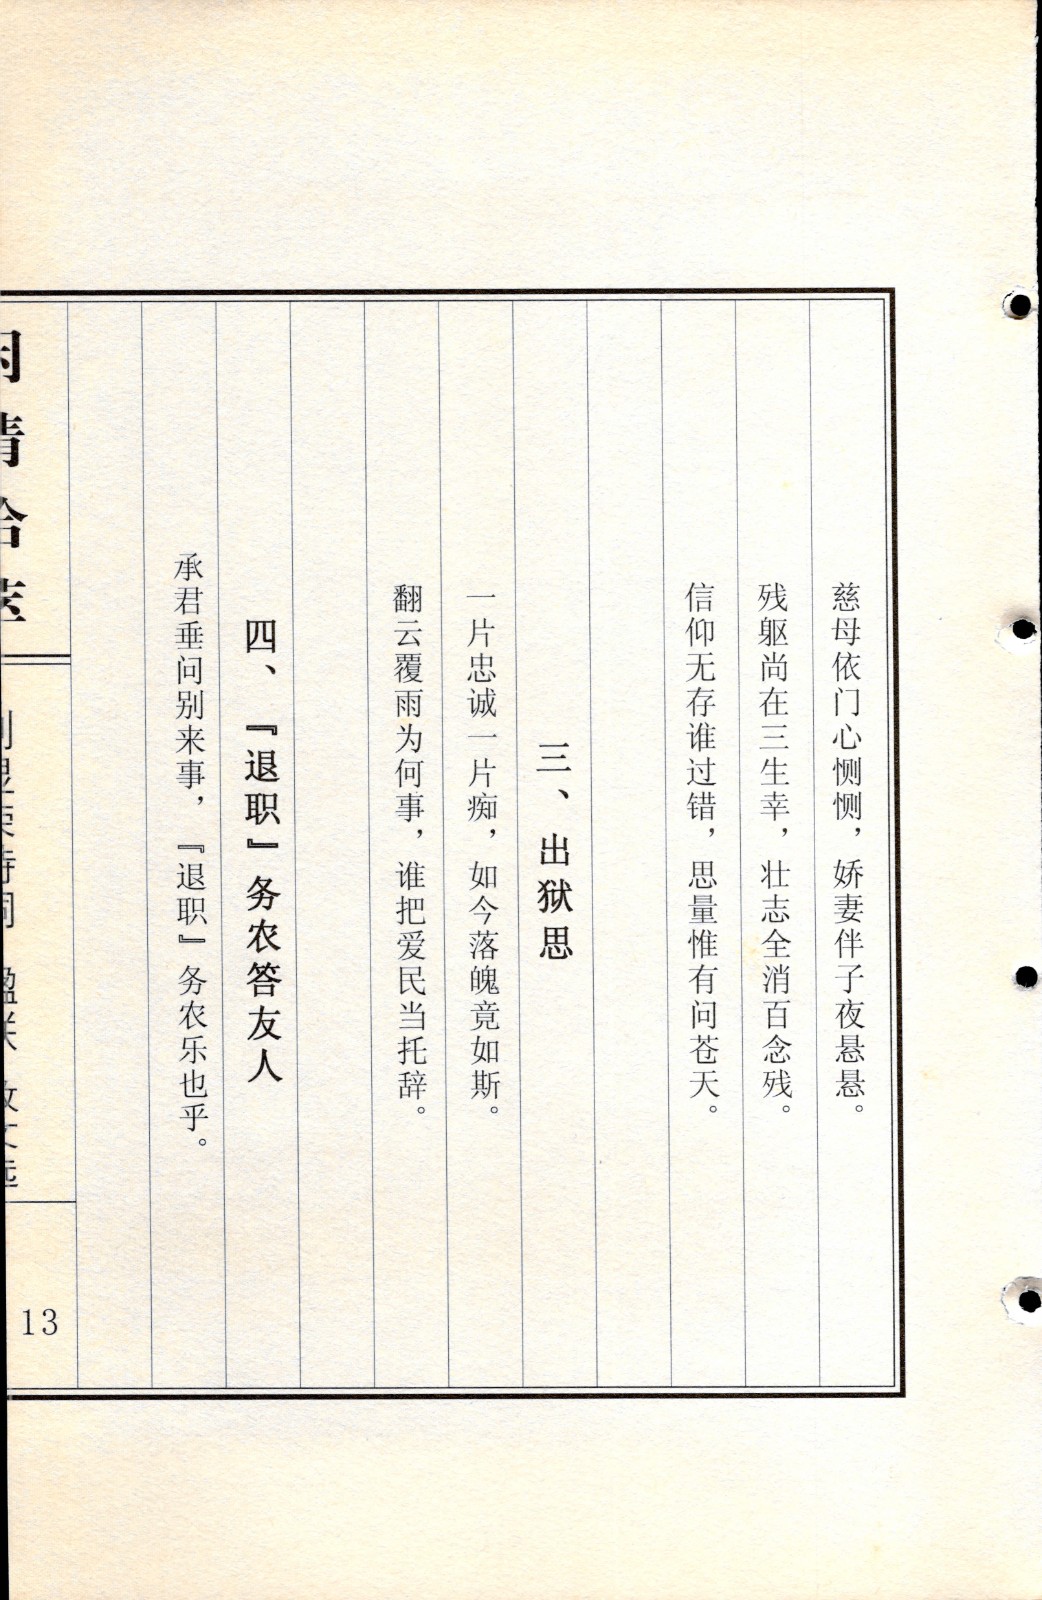 慈母依门心恻恻，娇妻伴子夜悬悬。
残躯尚在三生幸，壮志全消百念残。
信仰无存谁过错，思量惟有问苍天。
三、出狱思
一片忠诚一片痴，如今落魄竟如斯。
翻云覆雨为何事，谁把爱民当托辞。
四、『退职』务农答友人
承君垂问别来事，『退职』务农乐也乎。
13